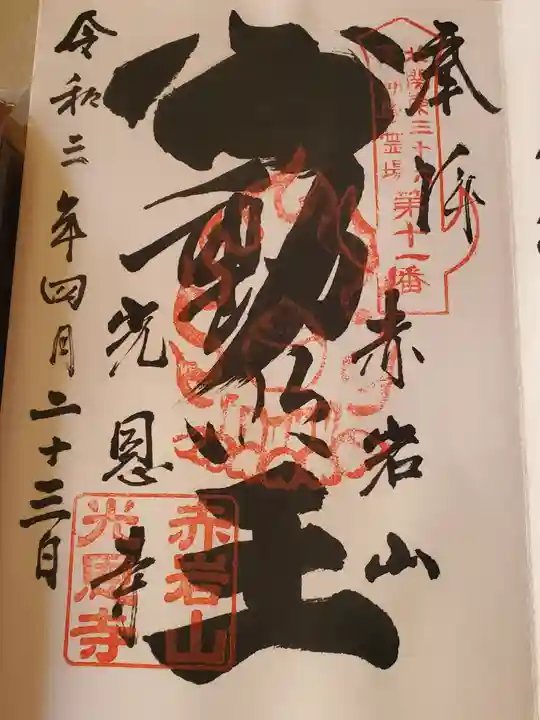 奉拝
赤岩山
北関東三十六
不動尊霊場
第十一番
不動明王
光恩寺
赤岩山
光恩寺
令和三年四月二十三日